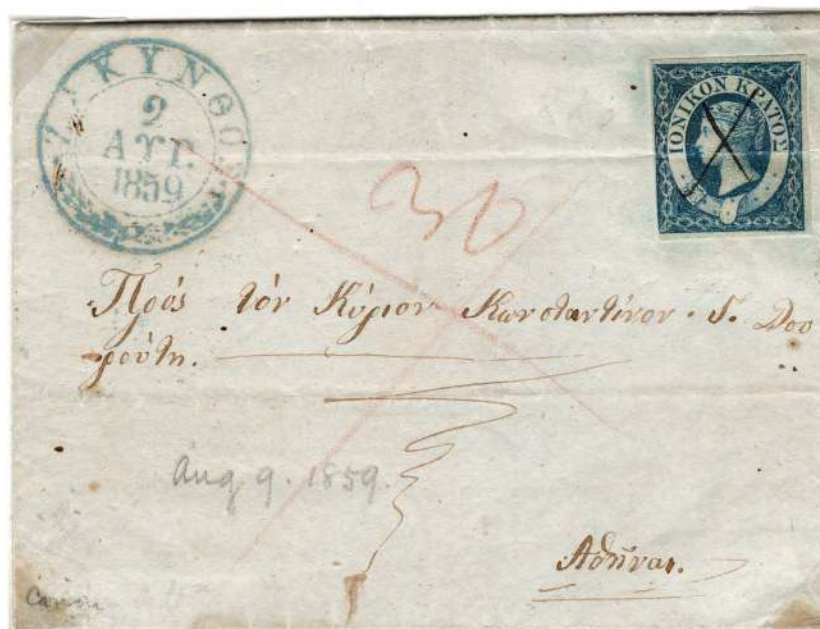 ΖΑΚΥΝΘΟΣ
9
ΑΥΓ.
1859
ΙΟΝΙΚΟΝ ΚΡΑΤΟΣ
30
Πρός τόν Κύριον Κωνσταντίνον. Γ. Δου
ρούτη.
Aug 9. 1859.
Αθήναι.